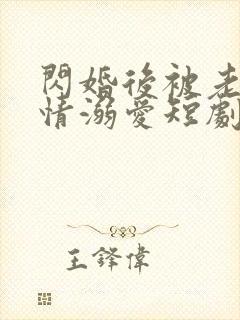 閃婚後被老
情溺愛短劇
王鋒偉